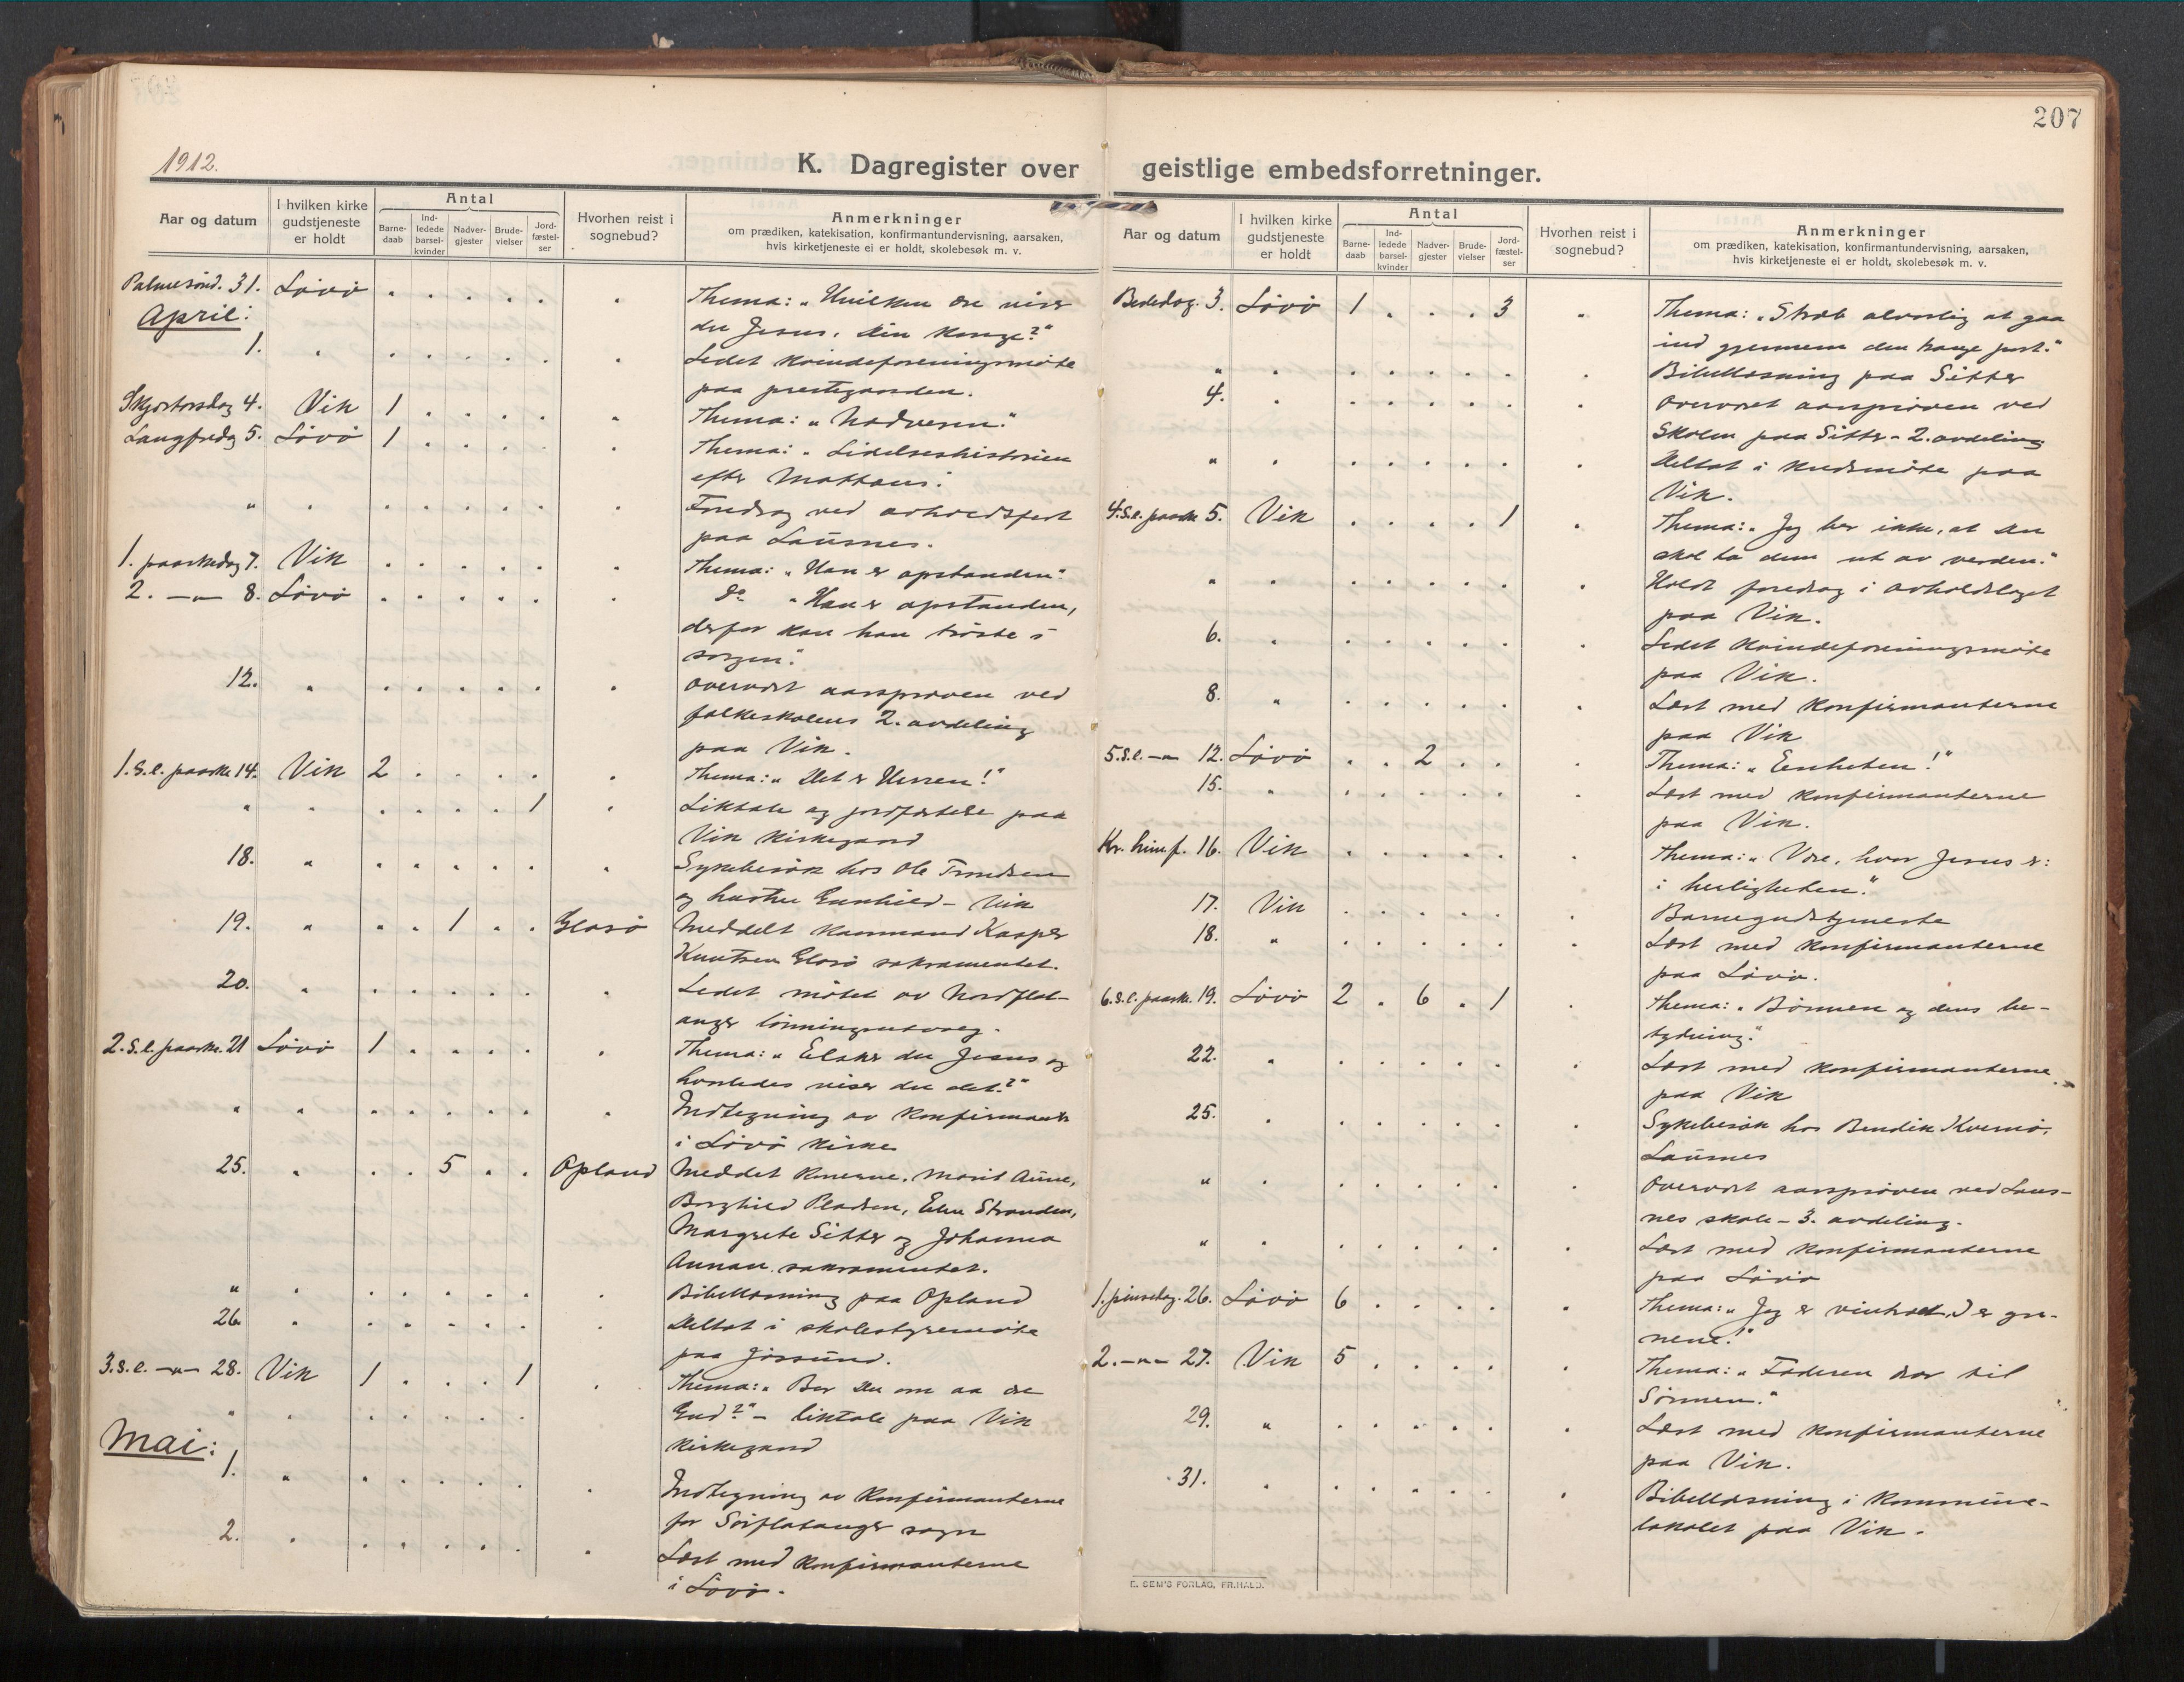 207
1912.
K. Dagregister over geistlige embedsforretninger.
Aar og datum
I hvilken kirke gudstjeneste er holdt
Antal
Barne-daab
Ind-ledede barsel-kvinder
Nadver-gjester
Brude-vielser
Jord-fæstel-ser
Hvorhen reist i sognebud?
Anmerkninger
om prædiken, katekisation, konfirmantundervisning, aarsaken,
hvis kirketjeneste ei er holdt, skolebesøk m. v.
Palmesønd. 31. Løvø . . . . . . Thema: "Hvilken ære viser
April: du Jesus, din konge?"
1. " . . . . . . Ledet kvindeforeningsmøte
paa prestegaarden.
Skjærtorsdag 4. Vik 1 . . . . . Thema: "Nadveren."
Langfredag 5. Løvø 1 . . . . . Thema: "Lidelseshistorien
efter Mattæus.
" " . . . . . . Foredrag ved avholdsfest
paa Lausnes.
1. paaskedag 7. Vik . . . . . . Thema: "Han er opstanden"
2. -"- 8. Løvø . . . . . . Do "Han er opstanden,
derfor kan han trøste i
sorgen."
12. " . . . . . . Overvært aarsprøven ved
folkeskolens 2. avdeling
paa Vik.
1. S. e. paaske 14. Vik 2 . . . . . Thema: "Det er Herren!"
" " . . . . 1 . Liktale og jordfæstelse paa
Vik kirkegaard
18. " . . . . . . Sykebesøk hos Ole Trondsen
og hustru Gunhild - Vik
19. " . . 1 . . Glasø Meddelt kaarmand Kasper
Knutsen Glasø sakramentet.
20. " . . . . . . Ledet møtet av Nordflat-
anger lønningsutvalg.
2. S. e. paaske. 21 Løvø 1 . . . . . Thema: "Elsker du Jesus og
hvorledes viser du det?"
" " . . . . . . Indtegning av konfirmanter
i Løvø kirke
25. " . . 5 . . Opland Meddelt konerne, Marit Aune,
Borghild Pladsen, Elen Stranden,
Margrete Sitter og Johanna
Aunan sakramentet.
" " . . . . . . Bibellæsning paa Opland
26. " . . . . . . Deltat i skolestyremøte
paa Jøssund.
3. S. e. -"- 28. Vik 1 . . . 1 . Thema: "Ber du om aa ære
" " . . . . . Gud?" - liktale paa Vik
kirkegaard
Mai:
1. " . . . . . . Indtegning av konfirmanterne
for Sørflatanger sogn
2. " . . . . . . Læst med konfirmanterne
i Løvø.
Aar og datum
I hvilken kirke gudstjeneste er holdt
Antal
Barne-daab
Ind-ledede barsel-kvinder
Nadver-gjester
Brude-vielser
Jord-fæstel-ser
Hvorhen reist i sognebud?
Anmerkninger
om prædiken, katekisation, konfirmantundervisning, aarsaken,
hvis kirketjeneste ei er holdt, skolebesøk m. v.
Bededag. 3. Løvø 1 . . . 3 . Thema: "Stræb alvorlig at gaa
ind gjennem den trange port."
" " . . . . . . Bibellæsning paa Sitter
4. " . . . . . . Overvært aarsprøven ved
skolen paa Sitter - 2. avdeling
" " . . . . . . Deltat i kredsmøte paa
Vik.
4. S. e. paaske 5. Vik . . . . 1 . Thema: "Jeg ber ikke, at du
skal ta dem ut av verden."
" " . . . . . . Holdt foredrag i avholdslaget
paa Vik.
6. " . . . . . . Ledet kvindeforeningsmøte
paa Vik.
8. " . . . . . . Læst med konfirmanterne
paa Vik
5. S. e. -"- 12. Løvø . . 2 . . . Thema: "Eenheten!"
15. " . . . . . . Læst med konfirmanterne
paa Vik.
Kr. himf. 16. Vik . . . . . . Thema: "Være, hvor Jesus er:
i herligheten."
17. Vik . . . . . . Barnegudstjeneste
18. " . . . . . . Læst med konfirmanterne
paa Løvø.
6. S. e. paaske. 19. Løvø 2 . 6 . 1 . Thema: "Bønnen og dens be-
tydning."
22. " . . . . . . Læst med konfirmanterne
paa Vik
25. " . . . . . . Sykebesøk hos Bendik Kvernø,
Lausnes
" " . . . . . . Overvært aarsprøven ved Laus-
nes skole - 3. avdeling.
" " . . . . . . Læst med konfirmanterne
paa Løvø
1. pinsedag. 26. Løvø 6 . . . . . Thema: "Jeg er vintræet, I er gre-
nene!"
2. -"- 27. Vik 5 . . . . . Thema: "Faderen drar til
Sønnen."
29. " . . . . . . Læst med konfirmanterne
paa Vik.
31. " . . . . . . Bibellæsning i kommune-
lokalet paa Vik.
E. SEM'S FORLAG, FR.HALD.